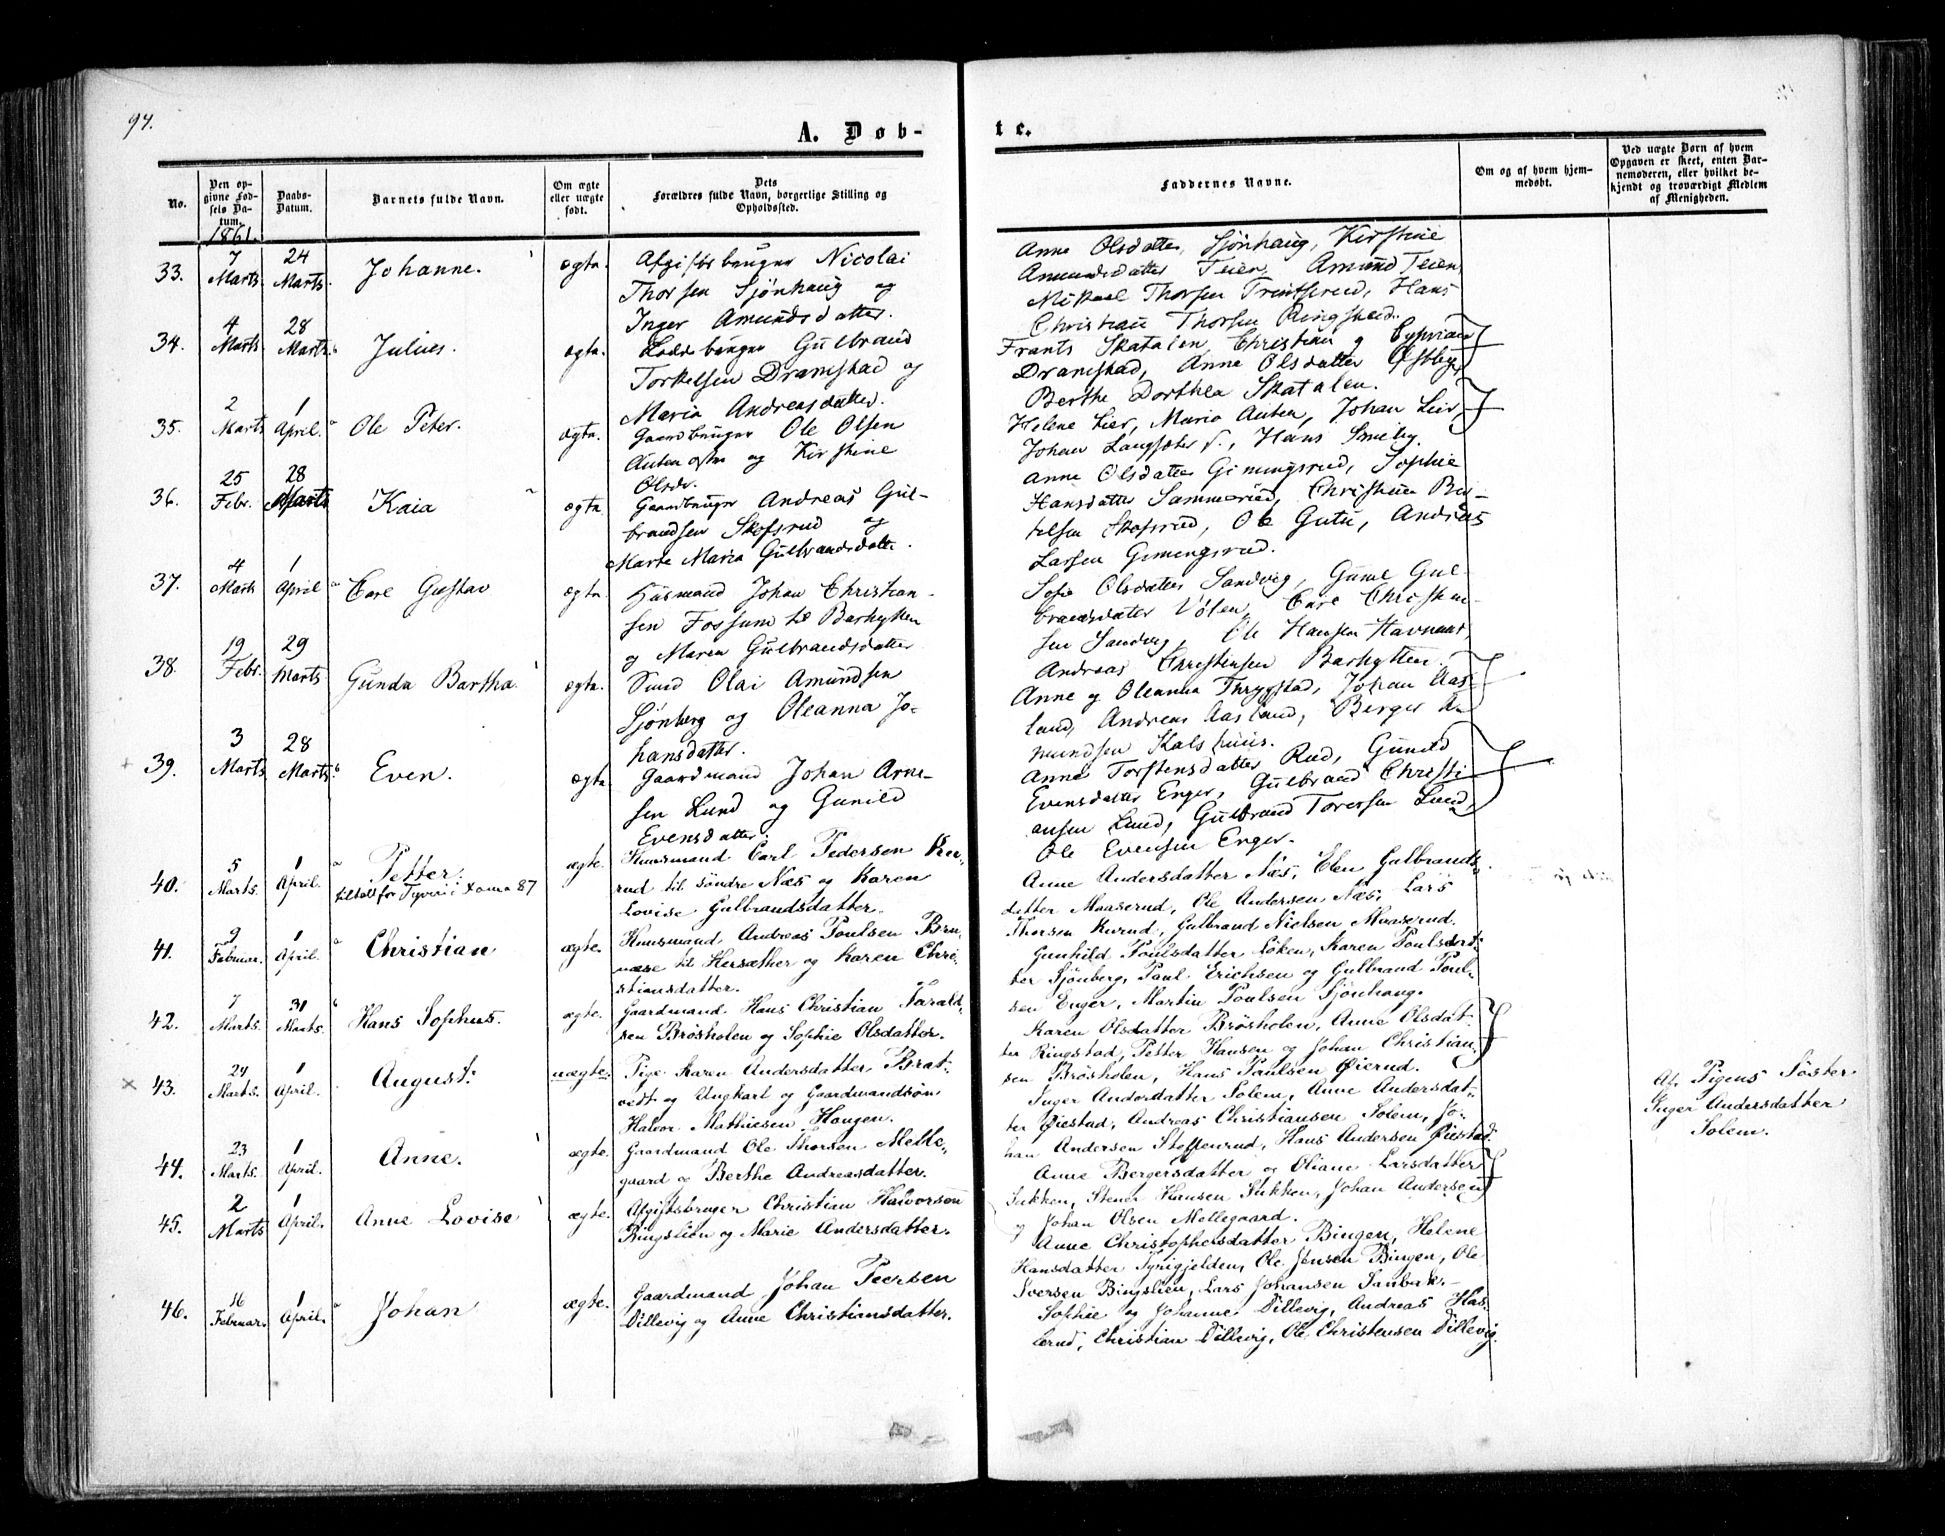 94.
A. Døb-
te.
No.
Den op-
givne Fød-
sels Da-
tum.
Daabs-
Datum.
Barnets fulde Navn.
Om ægte
eller uægte
født.
Dets
Forældres fulde Navn, borgerlige Stilling og
Opholdssted.
Faddernes Navne.
Om og af hvem hjem-
medøbt.
Ved uægte Børn af hvem
Opgaven er skeet, enten Bar-
nemoderen, eller hvilket be-
kjendt og troværdigt Medlem
af Menigheden.
1861.
33.
7
Marts
24
Marts
Johanne.
ægte.
Afgiftsbruger Nicolai
Thorsen Sjönhaug og
Inger Amundsdatter.
Anne Olsdatter Sjönhaug, Kirstine
Amundsdatter Teien, Amund Teien,
Mikael Thorsen, Hans
Christian Thorsen Ringstad.
34.
4
Marts
28
Marts
Julius.
ægte.
Leddbruger Gulbrand
Torkelsen Dramstad og
Maria Andreasdatter.
Frants Skatalen, Christian og Cyprian
Dramstad, Anne Olsdatter Østby,
Berthe Dorthea Skatalen.
35.
2
Marts
1
April.
Ole Peter.
ægte.
Gaardbruger Ole Olsen
Auten østre og Kirstine
Olsdr.
Helene Lier, Maria Auten, Johan Lier,
Johan Langsæter, Hans Smeby.
36.
25
Febr.
28
Marts
Kaia
ægte
Gaardbruger Andreas Gul-
brandsen Skofsrud og
Marte Maria Gulbrandsdatter.
Anne Olsdatter Gimingsrud, Sophie
Hansdatter Sammerud, Christian Ber-
telsen Skofsrud, Ole Gutu, Andreas
Larsen Gimingsrud.
37.
4
Marts
1
April
Carl Gustav
ægte.
Husmand Johan Christian-
sen Fossum til Barhytten
og Maren Gulbrandsdatter
Sofie Olsdatter Sandvig, Gunil Gul-
brandsdatter Volen, Carl Christian-
sen Sandvig, Ole Hansen Havnaas,
Andreas Christensen Barhytten.
38.
19
Febr.
29
Marts
Gunda Bartha.
ægte.
Smed Olai Amundsen
Sjönberg og Oleanna Jo-
hansdatter.
Anne og Oleanna Thrygstad, Johan Aas-
land, Andreas Aasland, Berger A-
mundsen Kalshuus.
39.
3
Marts
28
Marts
Even.
ægte
Gaardmand Johan Arne-
sen Lund og Gunild
Evensdatter.
Anne Torstensdatter Rud, Gunild
Evensdatter Enger, Gulbrand Christi-
ansen Lund, Gulbrand Torersen Lund,
Ole Evensen Enger.
40.
5
Marts.
1
April.
Petter.
ægte.
Huusmand Carl Pedersen Ku-
rud til søndre Næs og Karen
Lovise Gulbrandsdatter.
Anne Andersdatter Næs, Elen Gulbrands-
datter Maaserud, Ole Andersen Næs, Lars
Thorsen Kurud, Gulbrand Nielsen Maaserud.
41.
9
Februar.
1
April.
Christian
ægte.
Huusmand Andreas Poulsen Bru-
næse til Hersæther og Karen Chri-
stiansdatter.
Gunhild Poulsdatter Løken, Karen Poulsdat-
ter Sjönberg, Paul Erichsen og Gulbrand Poul-
sen Enger, Martin Poulsen Sjönhaug.
42.
7
Marts.
31
Marts.
Hans Sophus.
ægte.
Gaardmand Hans Christian Harald-
sen Brøsholen og Sophie Olsdatter.
Karen Olsdatter Brøsholen, Anne Olsdat-
ter Ringstad, Petter Hansen og Johan Christian-
sen Brøsholen, Hans Paulsen Øierud.
43.
24
Marts.
1
April.
August.
uægte.
Pige Karen Andersdatter Brat-
vedt og Ungkarl og Gaardmandsøn
Halvor Mathiesen Haugen.
Inger Andersdatter Solem, Anne Andersdat-
ter Øiestad, Andreas Christiansen Solem, Jo-
han Andersen Steffenrud, Hans Andersen Øiestad.
Af Pigens Søster
Inger Andersdatter
Solem.
44.
23
Marts.
1
April.
Anne.
ægte.
Gaardmand Ole Thorsen Melle-
gaard og Berthe Andreasdatter.
Anne Bergersdatter og Oliane Larsdatter
Sukken, Stener Hansen Sukken, Johan Andersen
og Johan Olsen Mellegaard.
45.
2
Marts
1
April.
Anne Lovise
ægte.
Afgiftsbruger Christian Halvorsen
Bingslien og Marie Andersdatter.
Anne Christophersdatter Bingen, Helene
Hansdatter Tyrigjelden, Ole Jensen Bingen, Ole
Iversen Bingslien, Lars Johansen.
46.
16
Februar.
1
April.
Johan
ægte.
Gaardmand Johan Peersen
Dillevig og Anne Christiansdatter.
Sophie og Johanne Dillevig, Andreas Has-
lerud, Christian Dillevig, Ole Christensen Dillevig.